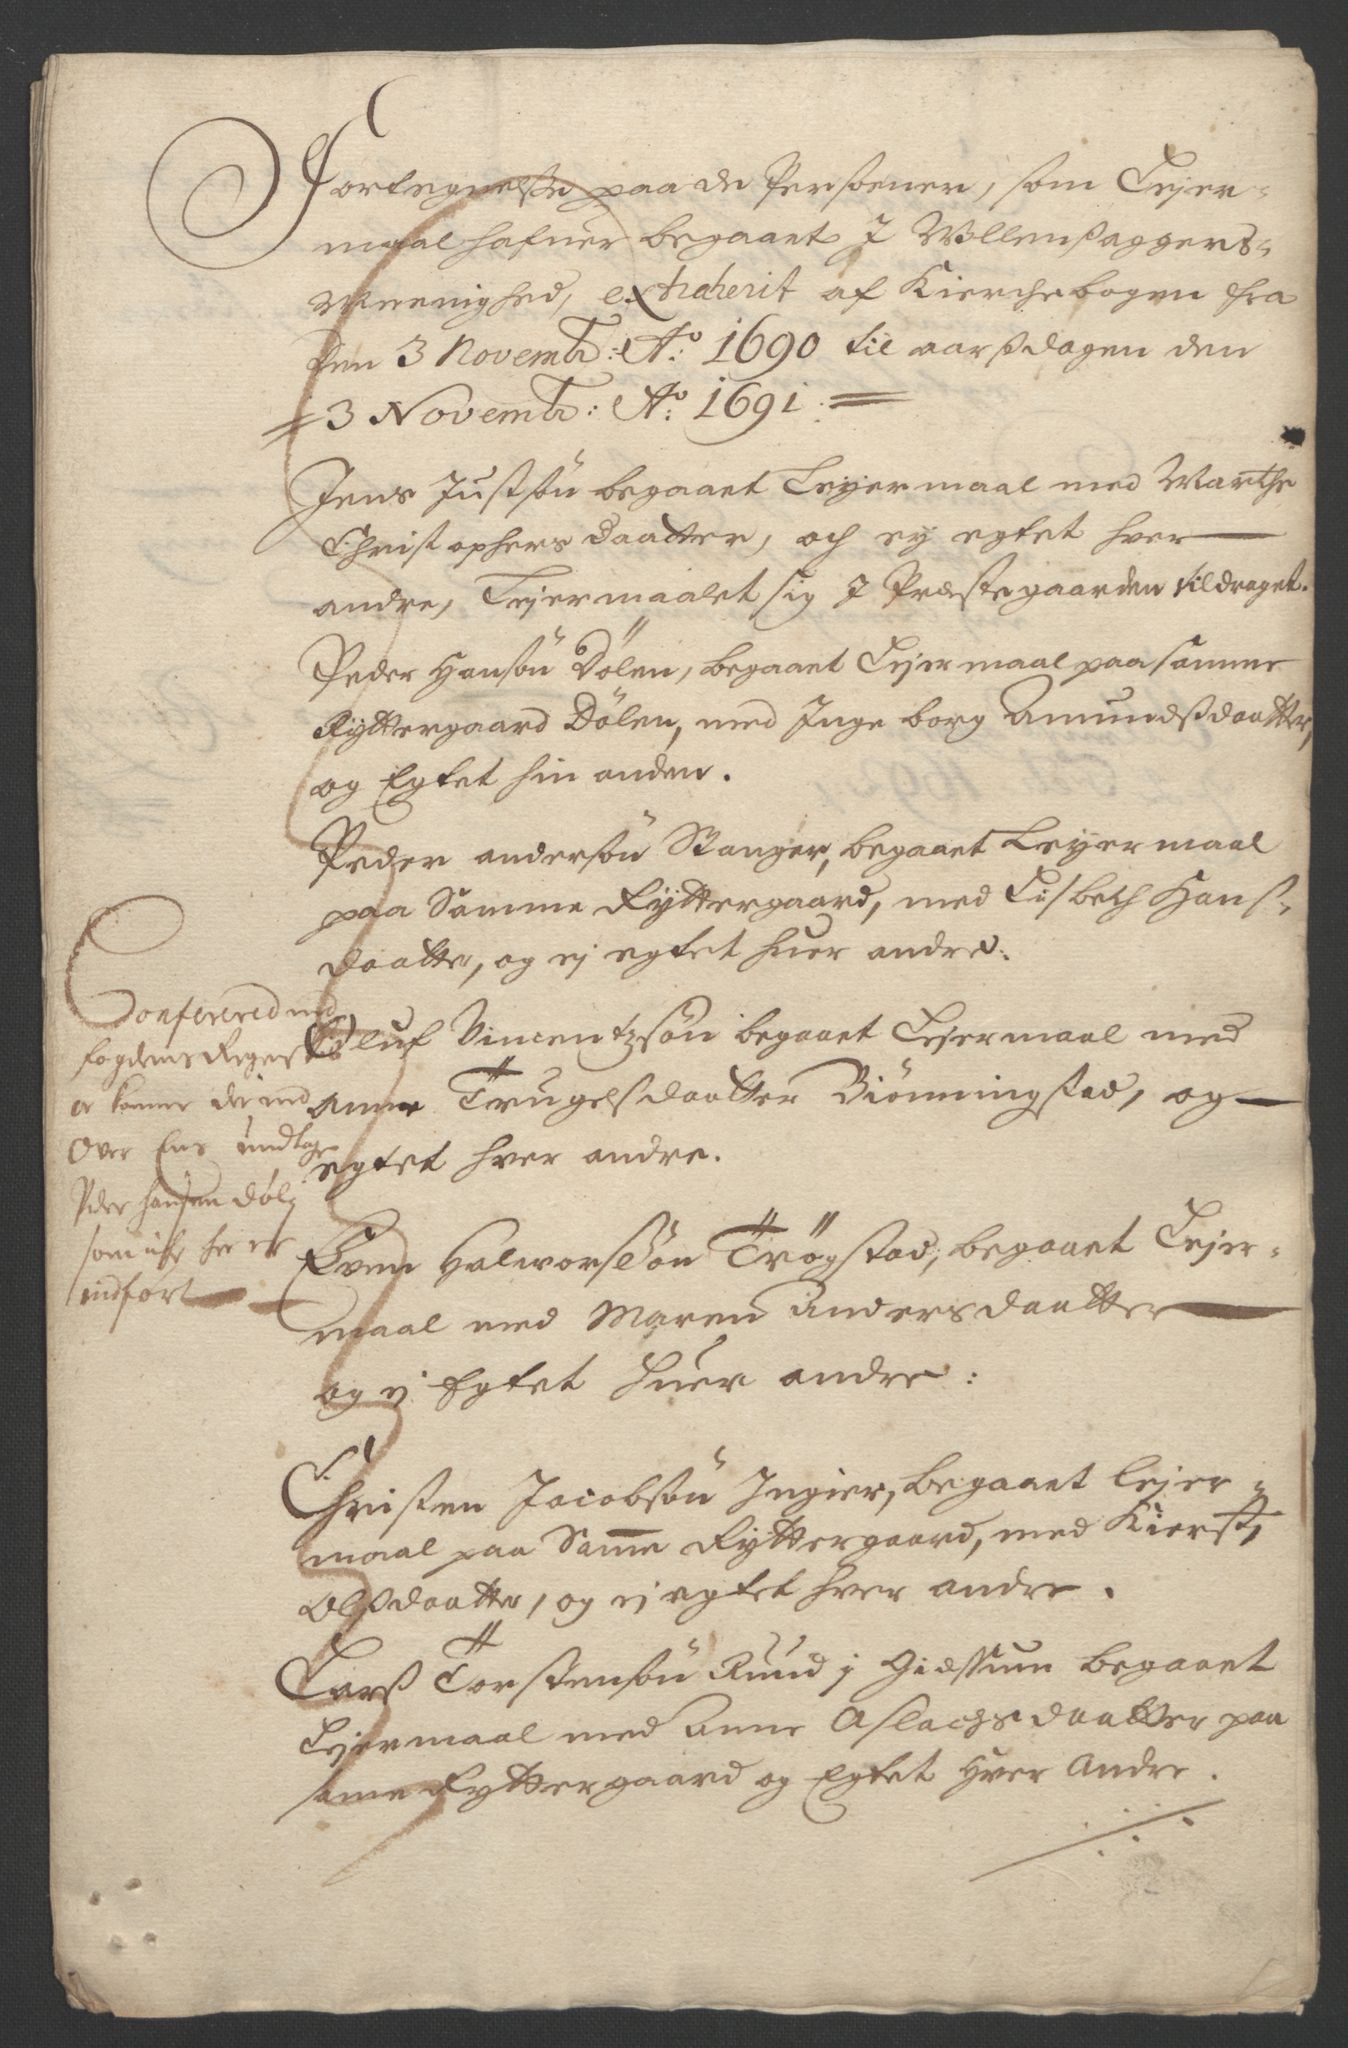 Fortegnelse paa de Persoener, som Lejer-
maal hafuer begaaet J Wllensaggers-
Meenighed, extraherit af Kierchebogen fra
den 3 Novembr: Ao: 1690 til aarsdagen den
3 Novembr: Ao: 1691.
Jens Justsøn begaaet Leyermaal med Marthe
Christophers daatter, och ey egtet hver
andre, Lejermaalet sig J Præstegaarden tildraget.
Peder Hansøn Dølen, begaaet Lejermaal paa samme
Ryttergaard Dølen, med Inge borg Amundsdaatter,
og Egtet hin anden.
Peder andersøn Stanger, begaaet Leyermaal
paa Samme Ryttergaard, med Lisbeth Hans-
daatter, og ej egtet huer andre.
Oluf Vincentzsøn begaaet Lejermaal med
Anne Trugelsdaatter Biønningstad, og
egtet hver andre.
Even Halworssøn Trøgstad, begaaet Lejer-
maal med Maren Andersdaatter
og ej Egtet huer andre:
Christen Jacobsøn Ingier, begaaet lejer-
maal paa Samme Ryttergaard, med Kierst,
Olsdaatter, og ej egtet hver andre.
Lars Torstensøn Ruud j Giessum begaaet
Lejermaal med Anne Aslachsdaatter paa
same Ryttergaard og Egtet hver Andre.
Conferered med
fogdens Register
oc komme de med
Over Ens undtagen
Peder hansen døl
som iche her er
indført